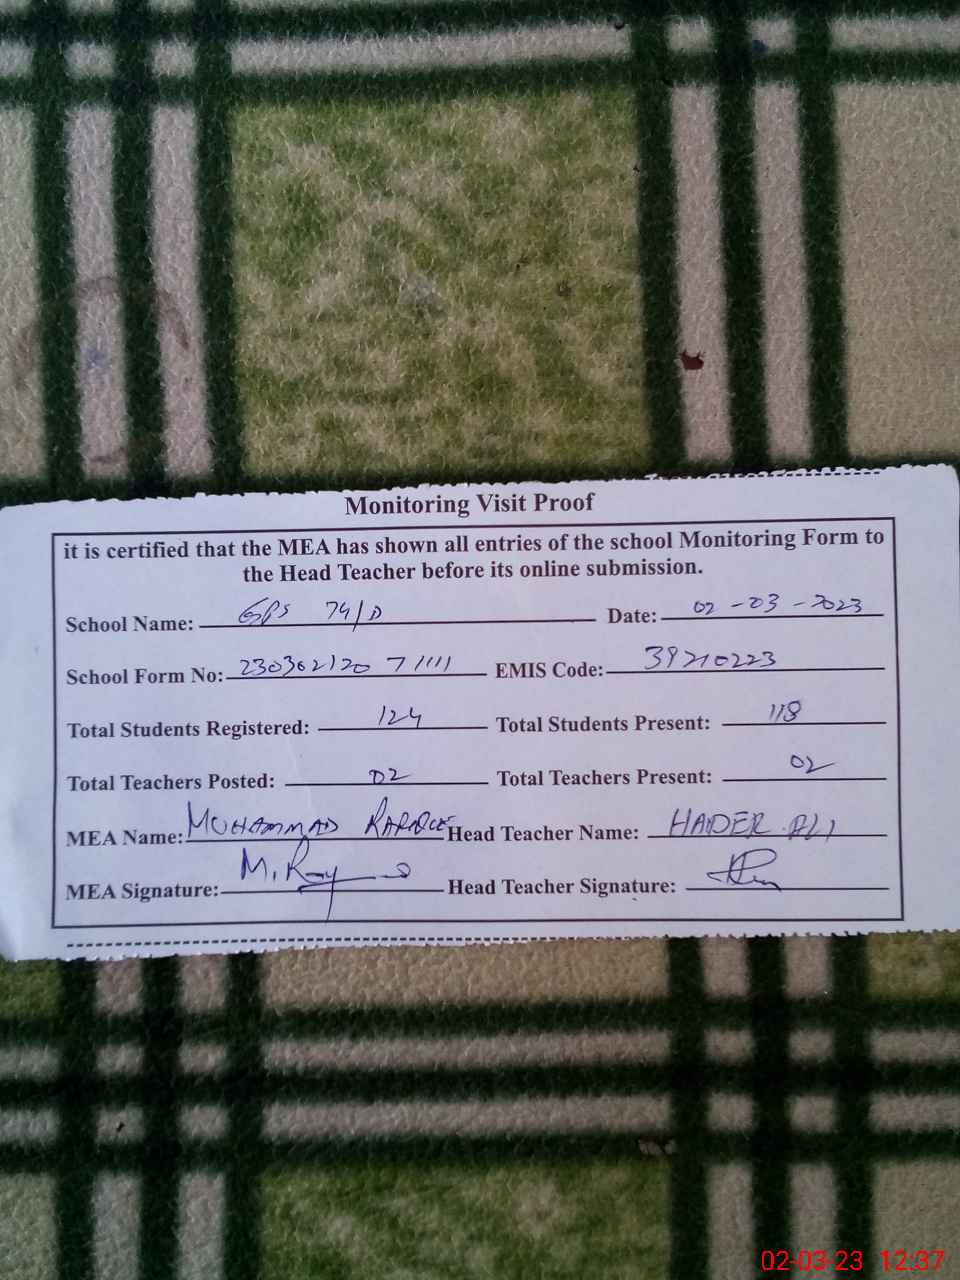 Monitoring Visit Proof
it is certified that the MEA has shown all entries of the school Monitoring Form to
the Head Teacher before its online submission.
School Name: GPS 74/D Date: 02-03-2023
School Form No: 23030212071111 EMIS Code: 39210223
Total Students Registered: 124 Total Students Present: 118
Total Teachers Posted: 02 Total Teachers Present: 02
MEA Name: MUHAMMAD Head Teacher Name: HAIDER ALI
MEA Signature: Head Teacher Signature:
02-03-23 12:37